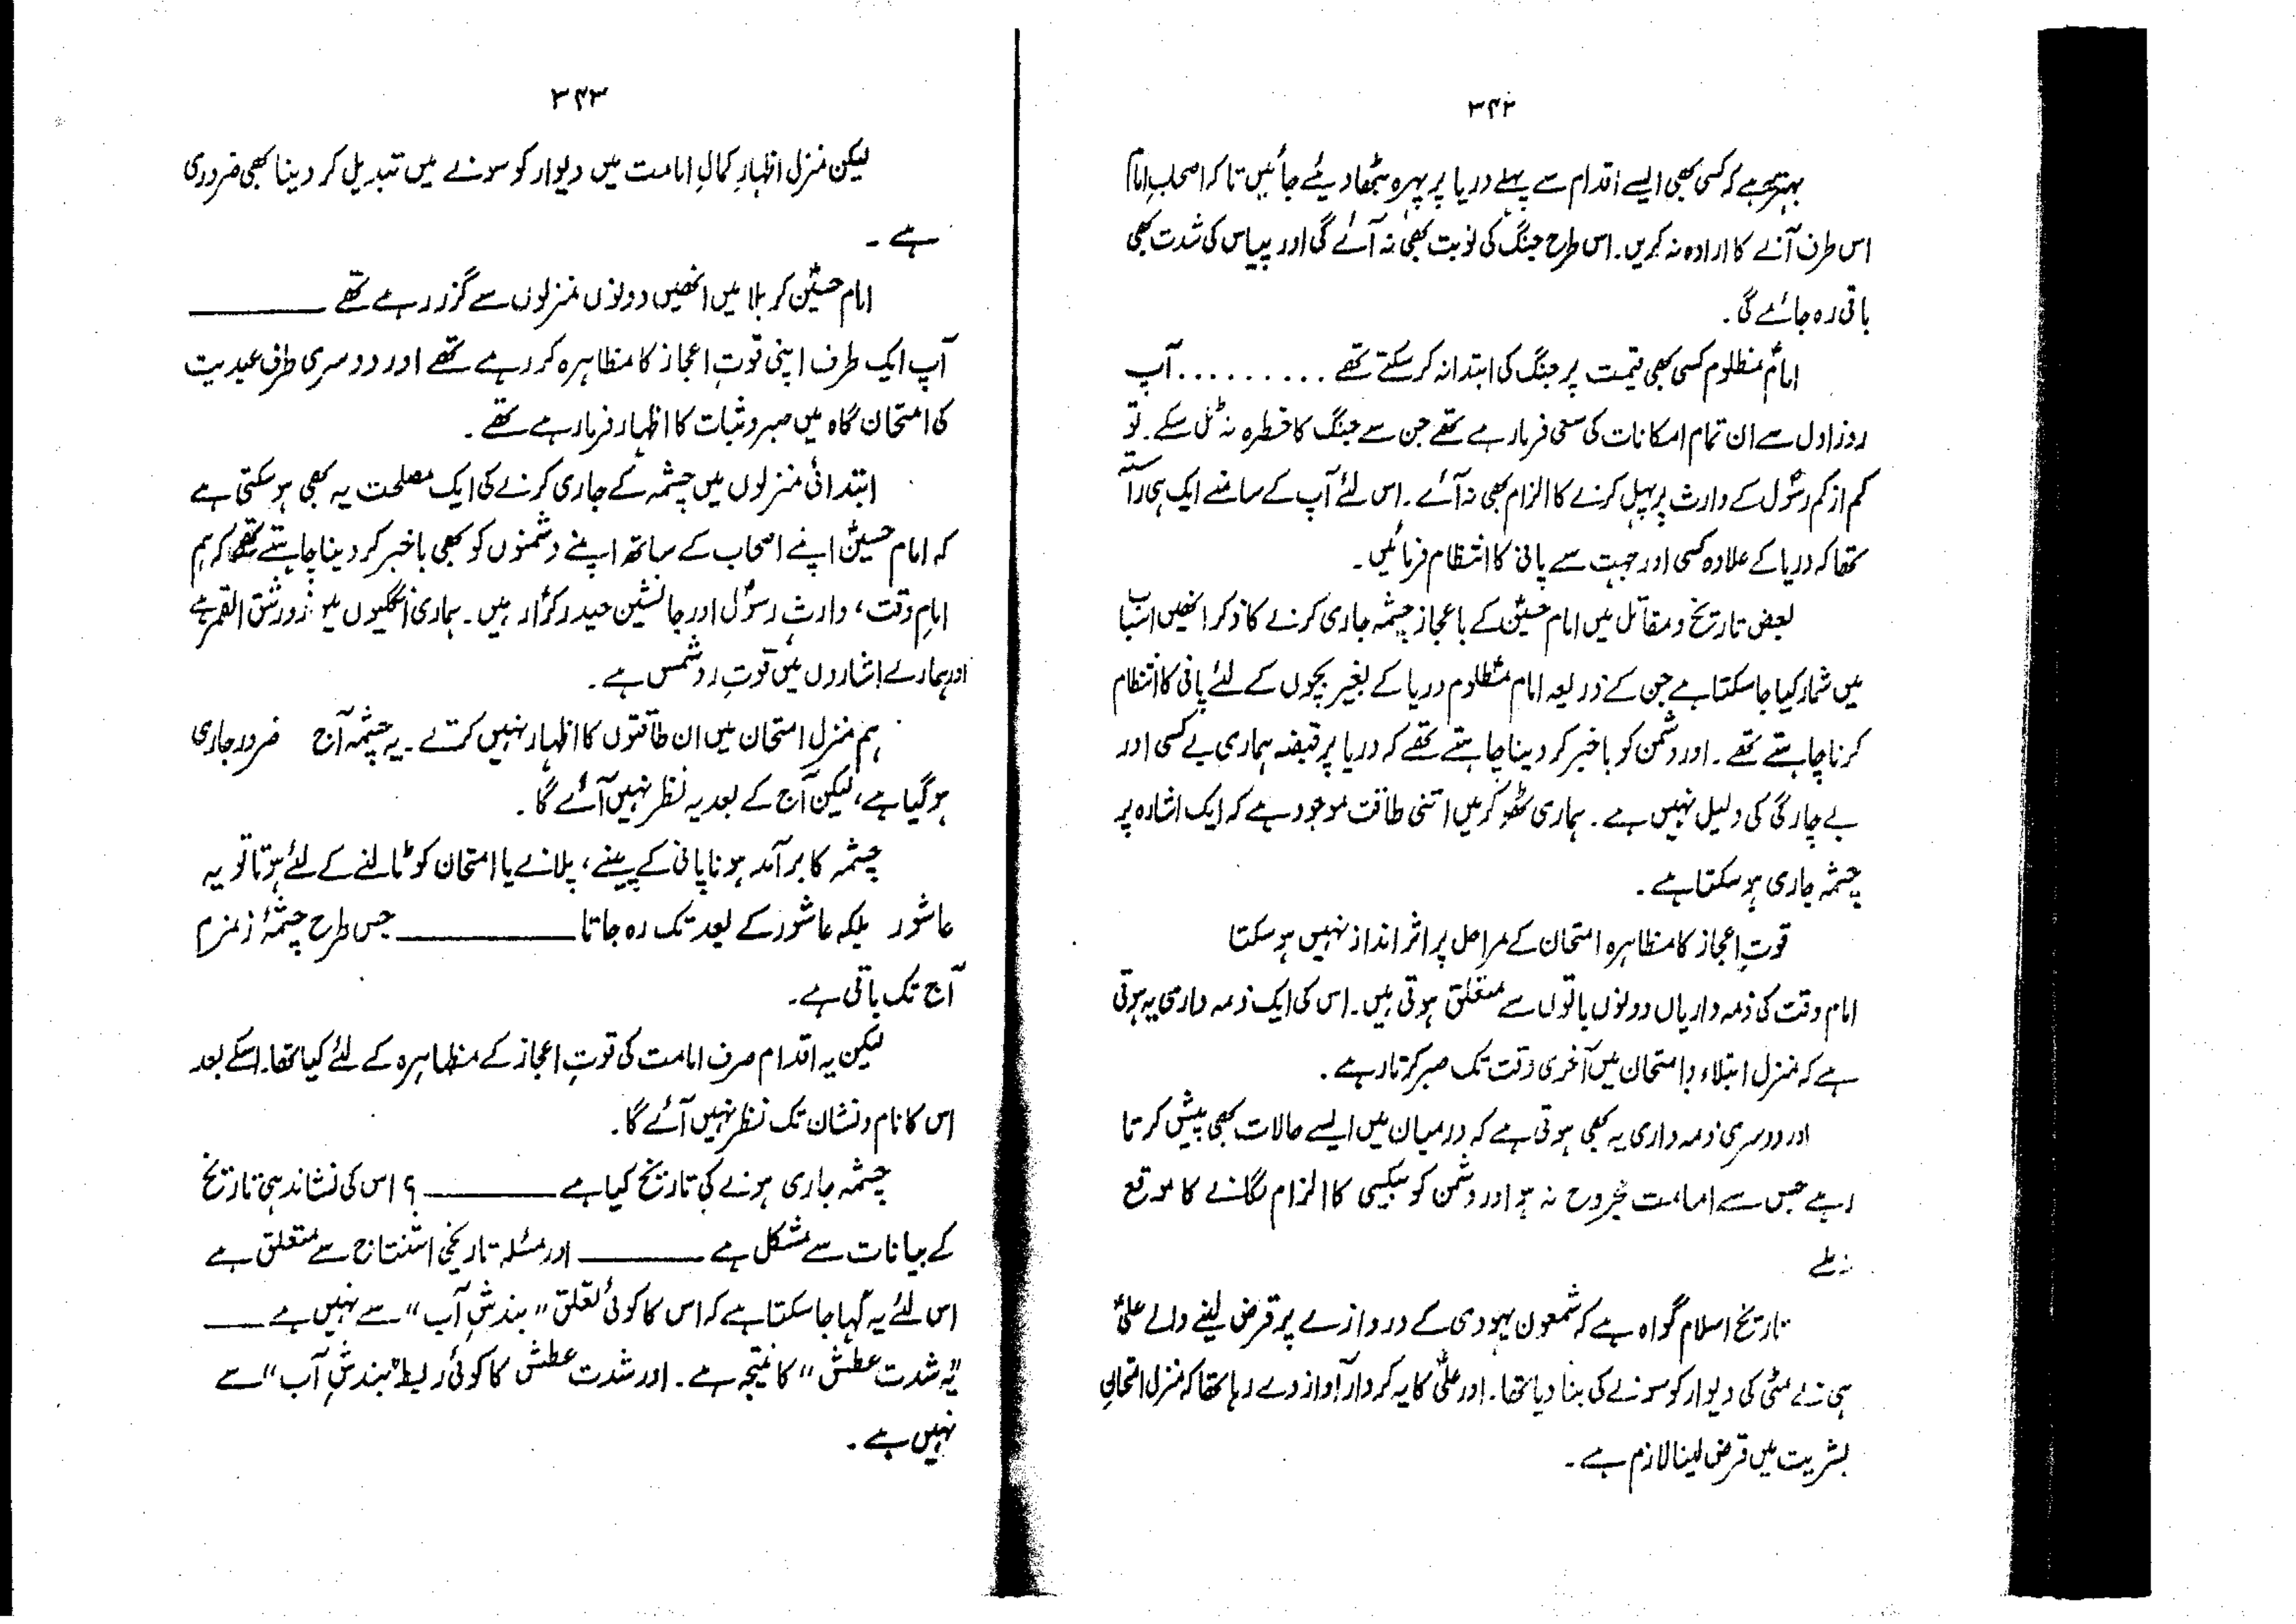 ۳۴۲
بہتر یہ ہے کہ کسی بھی ایسے اقدام سے پہلے دریا پر پہرہ بٹھا دیئے جائیں تاکہ اصحاب امام
اس طرف آنے کا ارادہ نہ کریں۔ اس طرح جنگ کی نوبت بھی نہ آئے گی اور پیاس کی شدت بھی
باقی رہ جائے گی۔
امام مظلوم کسی بھی قیمت پر جنگ کی ابتدا نہ کر سکتے تھے ......... آپ
روز اول سے ان تمام امکانات کی سعی فرما رہے تھے جن سے جنگ کا خطرہ نہ ٹل سکے۔ تو
کم از کم رسولؐ کے وارث پر پہل کرنے کا الزام بھی نہ آئے۔ اس لئے آپ کے سامنے ایک ہی راستہ
تھا کہ دریا کے علاوہ کسی اور جہت سے پانی کا انتظام فرمائیں۔
بعض تاریخ و مقاتل میں امام حسینؑ کے باعجاز چشمہ جاری کرنے کا ذکر انھیں اسباب
میں شمار کیا جا سکتا ہے جن کے ذریعہ امام مظلومؑ دریا کے بغیر بچوں کے لئے پانی کا انتظام
کرنا چاہتے تھے۔ اور دشمن کو باخبر کر دینا چاہتے تھے کہ دریا پر قبضہ ہماری بے کسی اور
بے چارگی کی دلیل نہیں ہے۔ ہماری ٹھوکر میں اتنی طاقت موجود ہے کہ ایک اشارہ پر
چشمہ جاری ہو سکتا ہے۔
قوتِ اعجاز کا مظاہرہ امتحان کے مراحل پر اثر انداز نہیں ہو سکتا
امام وقت کی ذمہ داریاں دونوں باتوں سے متعلق ہوتی ہیں۔ اس کی ایک ذمہ داری یہ ہوتی
ہے کہ منزل ابتلاء و امتحان میں آخری وقت تک صبر کرتا رہے۔
اور دوسری ذمہ داری یہ بھی ہوتی ہے کہ درمیان میں ایسے حالات بھی پیش کرتا
رہے جس سے امامت مجروح نہ ہو اور دشمن کو بیکسی کا الزام لگانے کا موقع
نہ ملے
تاریخ اسلام گواہ ہے کہ شمعون یہودی کے دروازے پر قرض لینے والے علیؑ
ہی نے مٹی کی دیوار کو سونے کی بنا دیا تھا۔ اور علیؑ کا یہ کردار آواز دے رہا تھا کہ منزل امتحانِ
بشریت میں قرض لینا لازم ہے۔
۳۴۳
لیکن منزل اظہارِ کمالِ امامت میں دیوار کو سونے میں تبدیل کر دینا بھی ضروری
ہے۔
امام حسینؑ کربلا میں انھیں دونوں منزلوں سے گزر رہے تھے ـــــــــ
آپ ایک طرف اپنی قوتِ اعجاز کا مظاہرہ کر رہے تھے اور دوسری طرف عبدیت
کی امتحان گاہ میں صبر و ثبات کا اظہار فرما رہے تھے۔
ابتدائی منزلوں میں چشمہ کے جاری کرنے کی ایک مصلحت یہ بھی ہو سکتی ہے
کہ امام حسینؑ اپنے اصحاب کے ساتھ اپنے دشمنوں کو بھی باخبر کر دینا چاہتے تھے کہ ہم
امام وقت، وارثِ رسولؐ اور جانشین حیدر کرارؑ ہیں۔ ہماری انگلیوں میں زورِ شق القمر ہے
اور ہمارے اشاروں میں قوتِ ردِ شمس ہے۔
ہم منزل امتحان میں ان طاقتوں کا اظہار نہیں کرتے۔ یہ چشمہ آج ضرور جاری
ہو گیا ہے، لیکن آج کے بعد یہ نظر نہیں آئے گا۔
چشمہ کا برآمد ہونا پانی کے پینے، پلانے یا امتحان کو ٹالنے کے لئے ہوتا تو یہ
عاشور بلکہ عاشور کے بعد تک رہ جاتا ـــــــــ جس طرح چشمۂ زمزم
آج تک باقی ہے۔
لیکن یہ اقدام صرف امامت کی قوتِ اعجاز کے مظاہرہ کے لئے کیا تھا۔ اسکے بعد
اس کا نام و نشان تک نظر نہیں آئے گا۔
چشمہ جاری ہونے کی تاریخ کیا ہے ـــــــــ ؟ اس کی نشاندہی تاریخ
کے بیانات سے مشکل ہے ـــــــــ اور مسئلہ تاریخی استنتاج سے متعلق ہے
اس لئے یہ کہا جا سکتا ہے کہ اس کا کوئی تعلق "بندشِ آب" سے نہیں ہے ــــــ
یہ "شدت عطش" کا نتیجہ ہے۔ اور شدت عطش کا کوئی ربط "بندشِ آب" سے
نہیں ہے۔